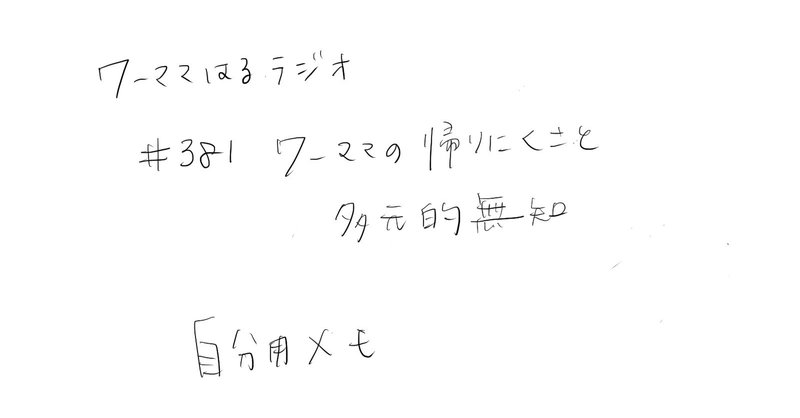 ワーママはるラジオ
#381 ワーママの帰りにくさと
多元的無知
自分用メモ